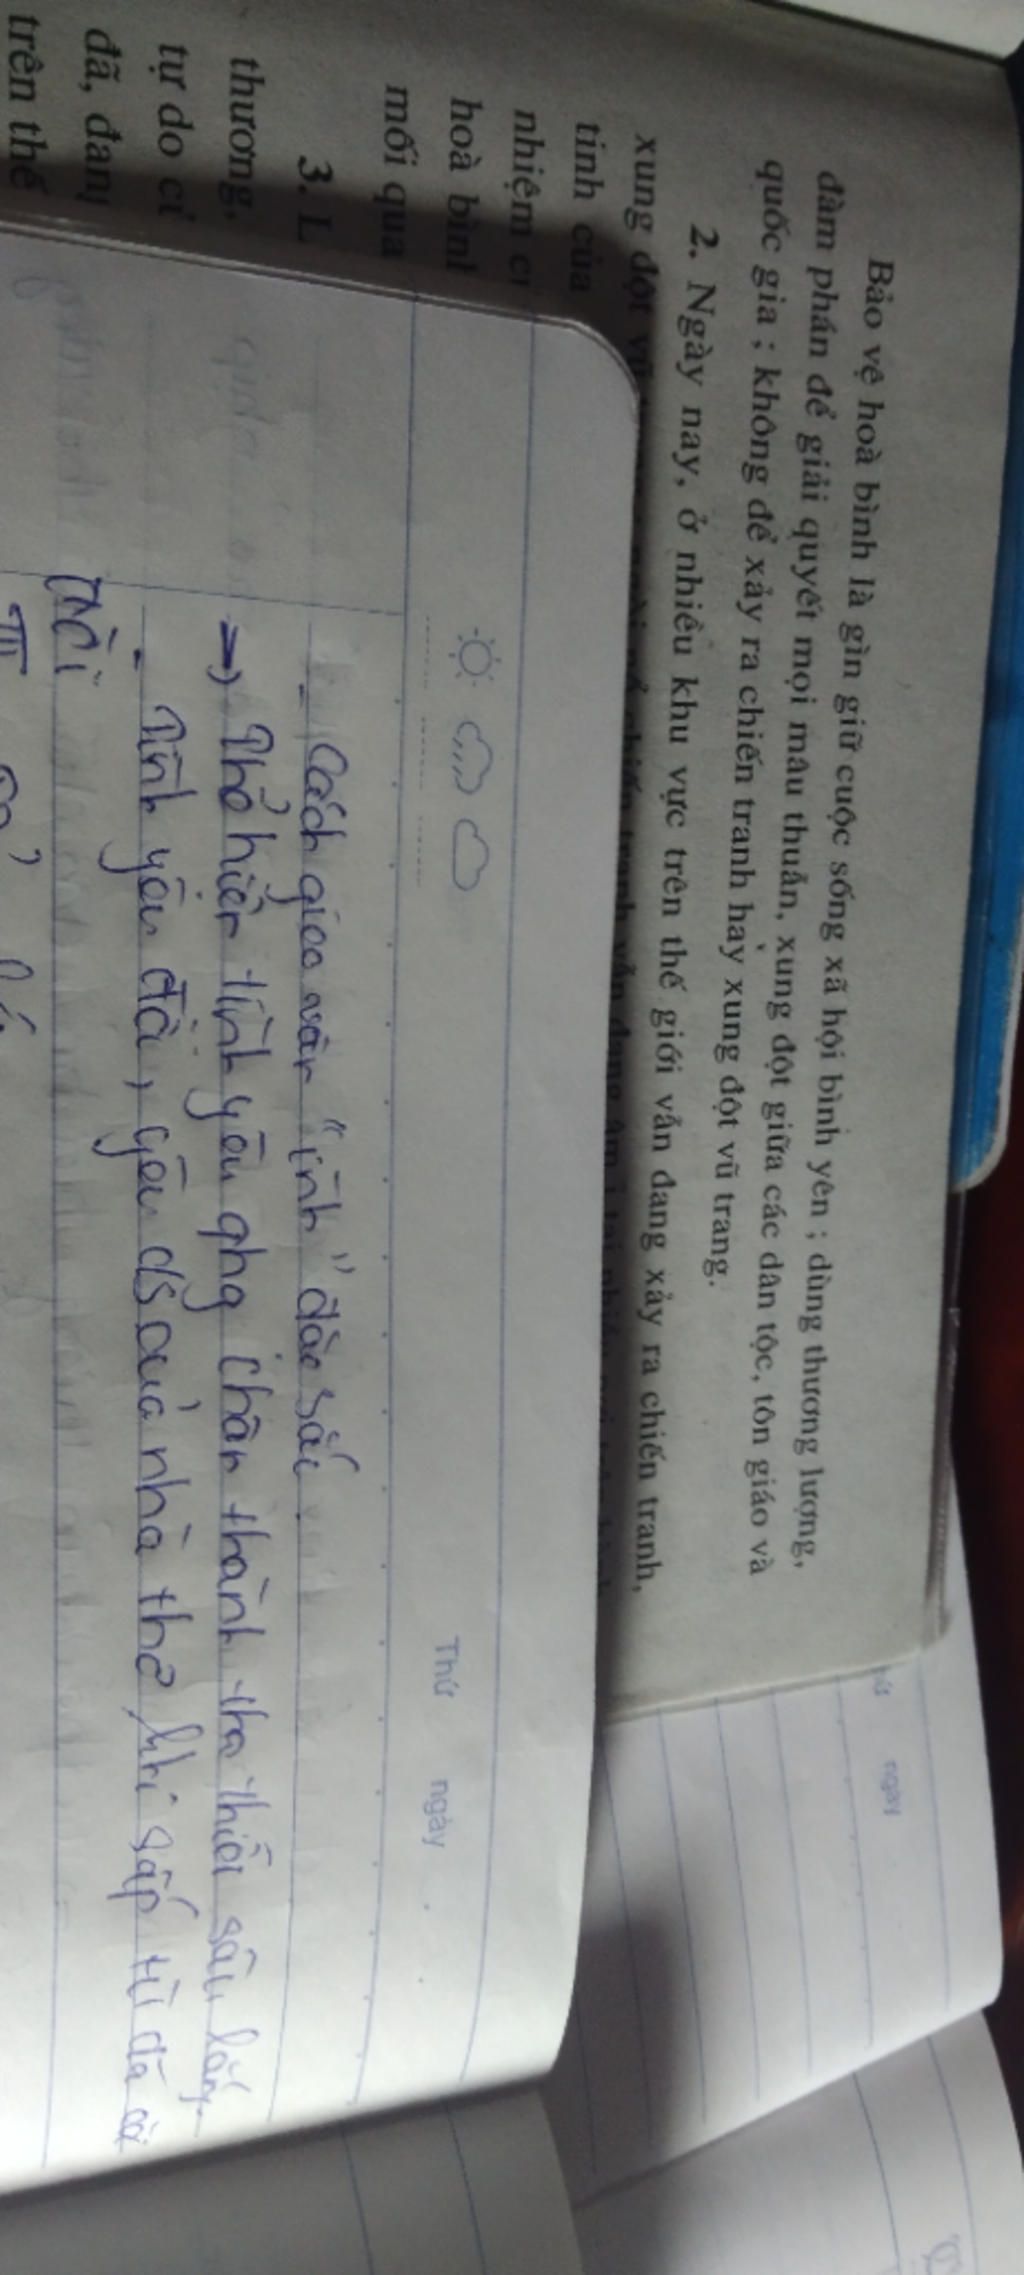 Bảo vệ hoà bình là gìn giữ cuộc sống xã hội bình yên ; dùng thương lượng,
đàm phán để giải quyết mọi mâu thuẫn, xung đột giữa các dân tộc, tôn giáo và
quốc gia ; không để xảy ra chiến tranh hay xung đột vũ trang.
2. Ngày nay, ở nhiều khu vực trên thế giới vẫn đang xảy ra chiến tranh,
xung đột
tinh của
nhiệm
hoà
mối qua
3. L
thương,
tự do
đã,
trên thế
Thứ ngày
ngày
- Cách gieo vần "inh" đặc sắc
→ Thể hiện tình yêu qhg chân thành tha thiết sâu lắng.
- Tình yêu đời, yêu cs của nhà thơ khi sắp từ dã cõi
đời